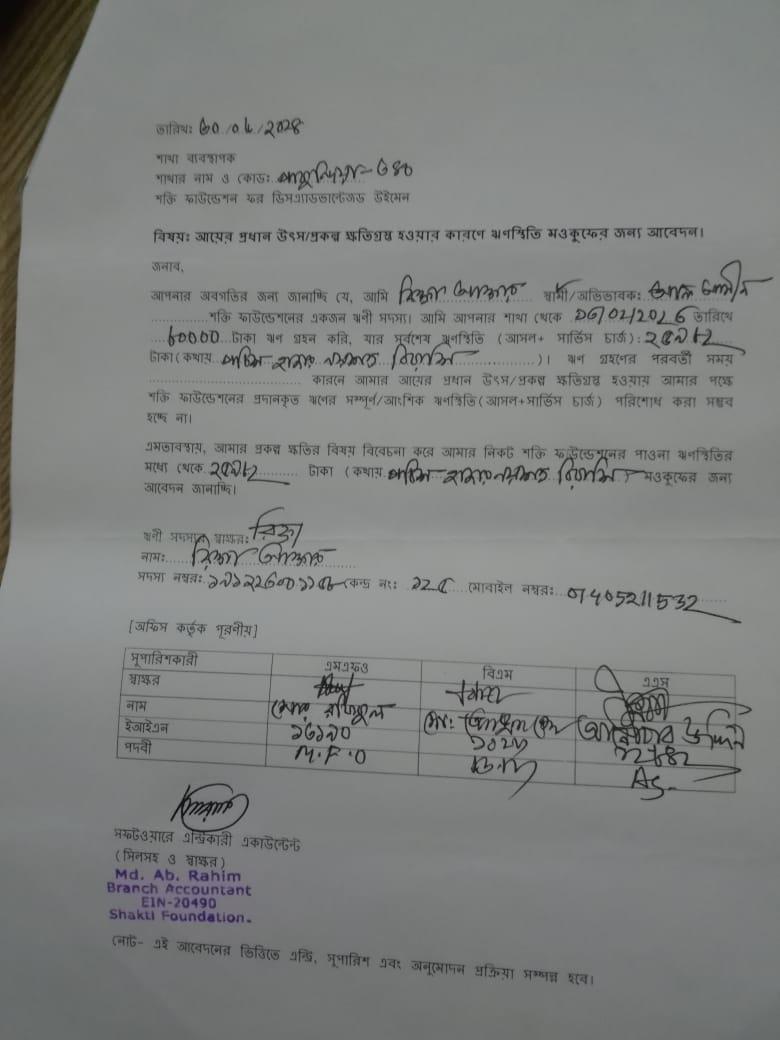 তারিখ: ৩০/০৪/২০২৪
শাখা ব্যবস্থাপক
শাখার নাম ও কোড:
শক্তি ফাউন্ডেশন ফর ডিসএ্যাডভান্টেজড উইমেন
বিষয়: আয়ের প্রধান উৎস/প্রকল্প ক্ষতিগ্রস্থ হওয়ার কারণে ঋণস্থিতি মওকুফের জন্য আবেদন।
জনাব,
আপনার অবগতির জন্য জানাচ্ছি যে, আমি রিক্তা আক্তার স্বামী/অভিভাবক:
শক্তি ফাউন্ডেশনের একজন ঋণী সদস্য। আমি আপনার শাখা থেকে তারিখে
৮০০০০ টাকা ঋণ গ্রহন করি, যার সর্বশেষ ঋণস্থিতি (আসল+ সার্ভিস চার্জ): ২৫৯৮২
টাকা (কথায় পচিশ হাজার নয়শত বিরাশি)। ঋণ গ্রহণের পরবর্তী সময়
কারনে আমার আয়ের প্রধান উৎস/প্রকল্প ক্ষতিগ্রস্থ হওয়ায় আমার পক্ষে
শক্তি ফাউন্ডেশনের প্রদানকৃত ঋণের সম্পূর্ণ/আংশিক ঋণস্থিতি (আসল+সার্ভিস চার্জ) পরিশোধ করা সম্ভব
হচ্ছে না।
এমতাবস্থায়, আমার প্রকল্প ক্ষতির বিষয় বিবেচনা করে আমার নিকট শক্তি ফাউন্ডেশনের পাওনা ঋণস্থিতির
মধ্যে থেকে ২৫৯৮২ টাকা (কথায় পচিশ হাজার নয়শত বিরাশি) মওকুফের জন্য
আবেদন জানাচ্ছি।
ঋণী সদস্যের স্বাক্ষর: রিক্তা
নাম: রিক্তা আক্তার
সদস্য নম্বর: কেন্দ্র নং: ১২৫ মোবাইল নম্বর: 01405211532
[অফিস কর্তৃক পূরণীয়]
সুপারিশকারী এমএফও বিএম এএস
স্বাক্ষর
নাম
ইআইএন ১৩১৯০
পদবী M.F.O B.M AS
সফটওয়ারে এন্ট্রিকারী একাউন্টেন্ট
(সিলসহ ও স্বাক্ষর)
Md. Ab. Rahim
Branch Accountant
EIN-20490
Shakti Foundation.
নোট- এই আবেদনের ভিত্তিতে এন্ট্রি, সুপারিশ এবং অনুমোদন প্রক্রিয়া সম্পন্ন হবে।